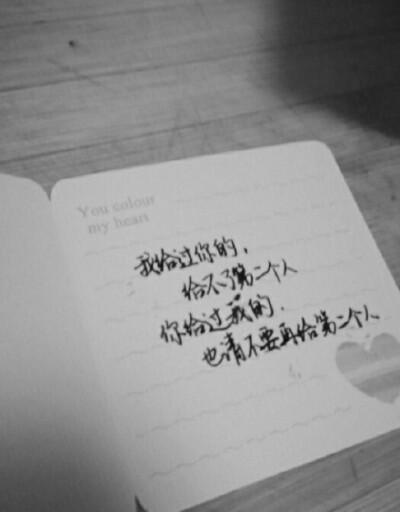 You colour
my heart
我给过你的，
给不了第二个人
你给过我的．
也请不要再给第二个人